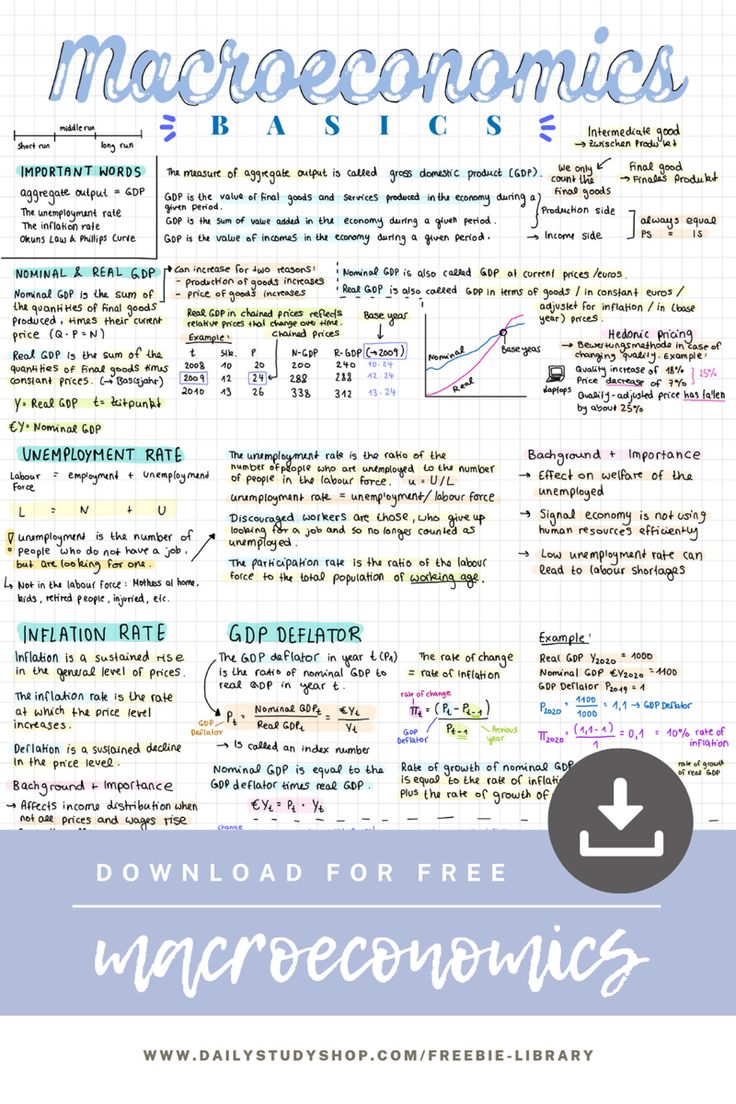 Macroeconomics
BASICS
middle run
short run
long run
Intermediate good
→ Zwischen Produkt
IMPORTANT WORDS
aggregate output = GDP
The unemployment rate
The inflation rate
Okuns Law & Phillips Curve
The measure of aggregate output is called gross domestic product (GDP).
GDP is the value of final goods and services produced in the economy during a
given period.
GDP is the sum of value added in the economy during a given period.
GDP is the value of incomes in the economy during a given period.
We only
count the
final goods
Final good
→ Finales Produkt
Production side
→ Income side
always equal
PS = IS
NOMINAL & REAL GDP
Nominal GDP is the sum of
the quantities of final goods
produced, times their current
price (Q·P=N)
Real GDP is the sum of the
quantities of final goods times
constant prices. (→ Basisjahr)
Y = Real GDP t = Zeitpunkt
€Y = Nominal GDP
Can increase for two reasons:
- production of goods increases
- price of goods increases
Nominal GDP is also called GDP at current prices/euros.
Real GDP is also called GDP in terms of goods / in constant euros /
adjustet for inflation / in (base
year) prices.
Real GDP in chained prices reflects
relative prices that change over time.
chained prices
Base year
Example:
t Stk. P N-GDP R-GDP (→2009)
2008 10 20 200 240 10·24
2009 12 24 288 288 12·24
2010 13 26 338 312 13·24
Nominal
Real
Base year
Hedonic Pricing
→ Bewertungsmethode in case of
changing quality. Example:
Laptops
Quality increase of 18%
Price decrease of 7%
25%
Quality-adjusted price has fallen
by about 25%
UNEMPLOYMENT RATE
Labour = employment + unemployment
force
L = N + U
! unemployment is the number of
people who do not have a job,
but are looking for one.
↳ Not in the labour force: Mothers at home,
kids, retired people, injuried, etc.
The unemployment rate is the ratio of the
number of people who are unemployed to the number
of people in the labour force. u = U/L
unemployment rate = unemployment/labour force
Discouraged workers are those, who give up
looking for a job and so no longer counted as
unemployed.
The participation rate is the ratio of the labour
force to the total population of working age.
Background + Importance
→ Effect on welfare of the
unemployed
→ Signal economy is not using
human resources efficiently
→ Low unemployment rate can
lead to labour shortages
INFLATION RATE
Inflation is a sustained rise
in the general level of prices.
The inflation rate is the rate
at which the price level
increases.
Deflation is a sustained decline
in the price level.
Background + Importance
→ Affects income distribution when
not all prices and wages rise
GDP DEFLATOR
The GDP deflator in year t (Pt)
is the ratio of nominal GDP to
real GDP in year t.
GDP Deflator
Pt = Nominal GDPt / Real GDPt = €Yt / Yt
→ Is called an index number
Nominal GDP is equal to the
GDP deflator times real GDP.
€Yt = Pt · Yt
change
The rate of change
= rate of inflation
rate of change
πt = (Pt - Pt-1) / Pt-1
GDP Deflator
Previous year
Rate of growth of nominal GDP
is equal to the rate of
plus the rate of growth of
rate of growth
of real GDP
Example:
Real GDP Y2020 = 1000
Nominal GDP €Y2020 = 1100
GDP Deflator P2019 = 1
P2020 = 1100 / 1000 = 1,1 → GDP Deflator
π2020 = (1,1-1) / 1 = 0,1 = 10% rate of
inflation
DOWNLOAD FOR FREE
macroeconomics
WWW.DAILYSTUDYSHOP.COM/FREEBIE-LIBRARY